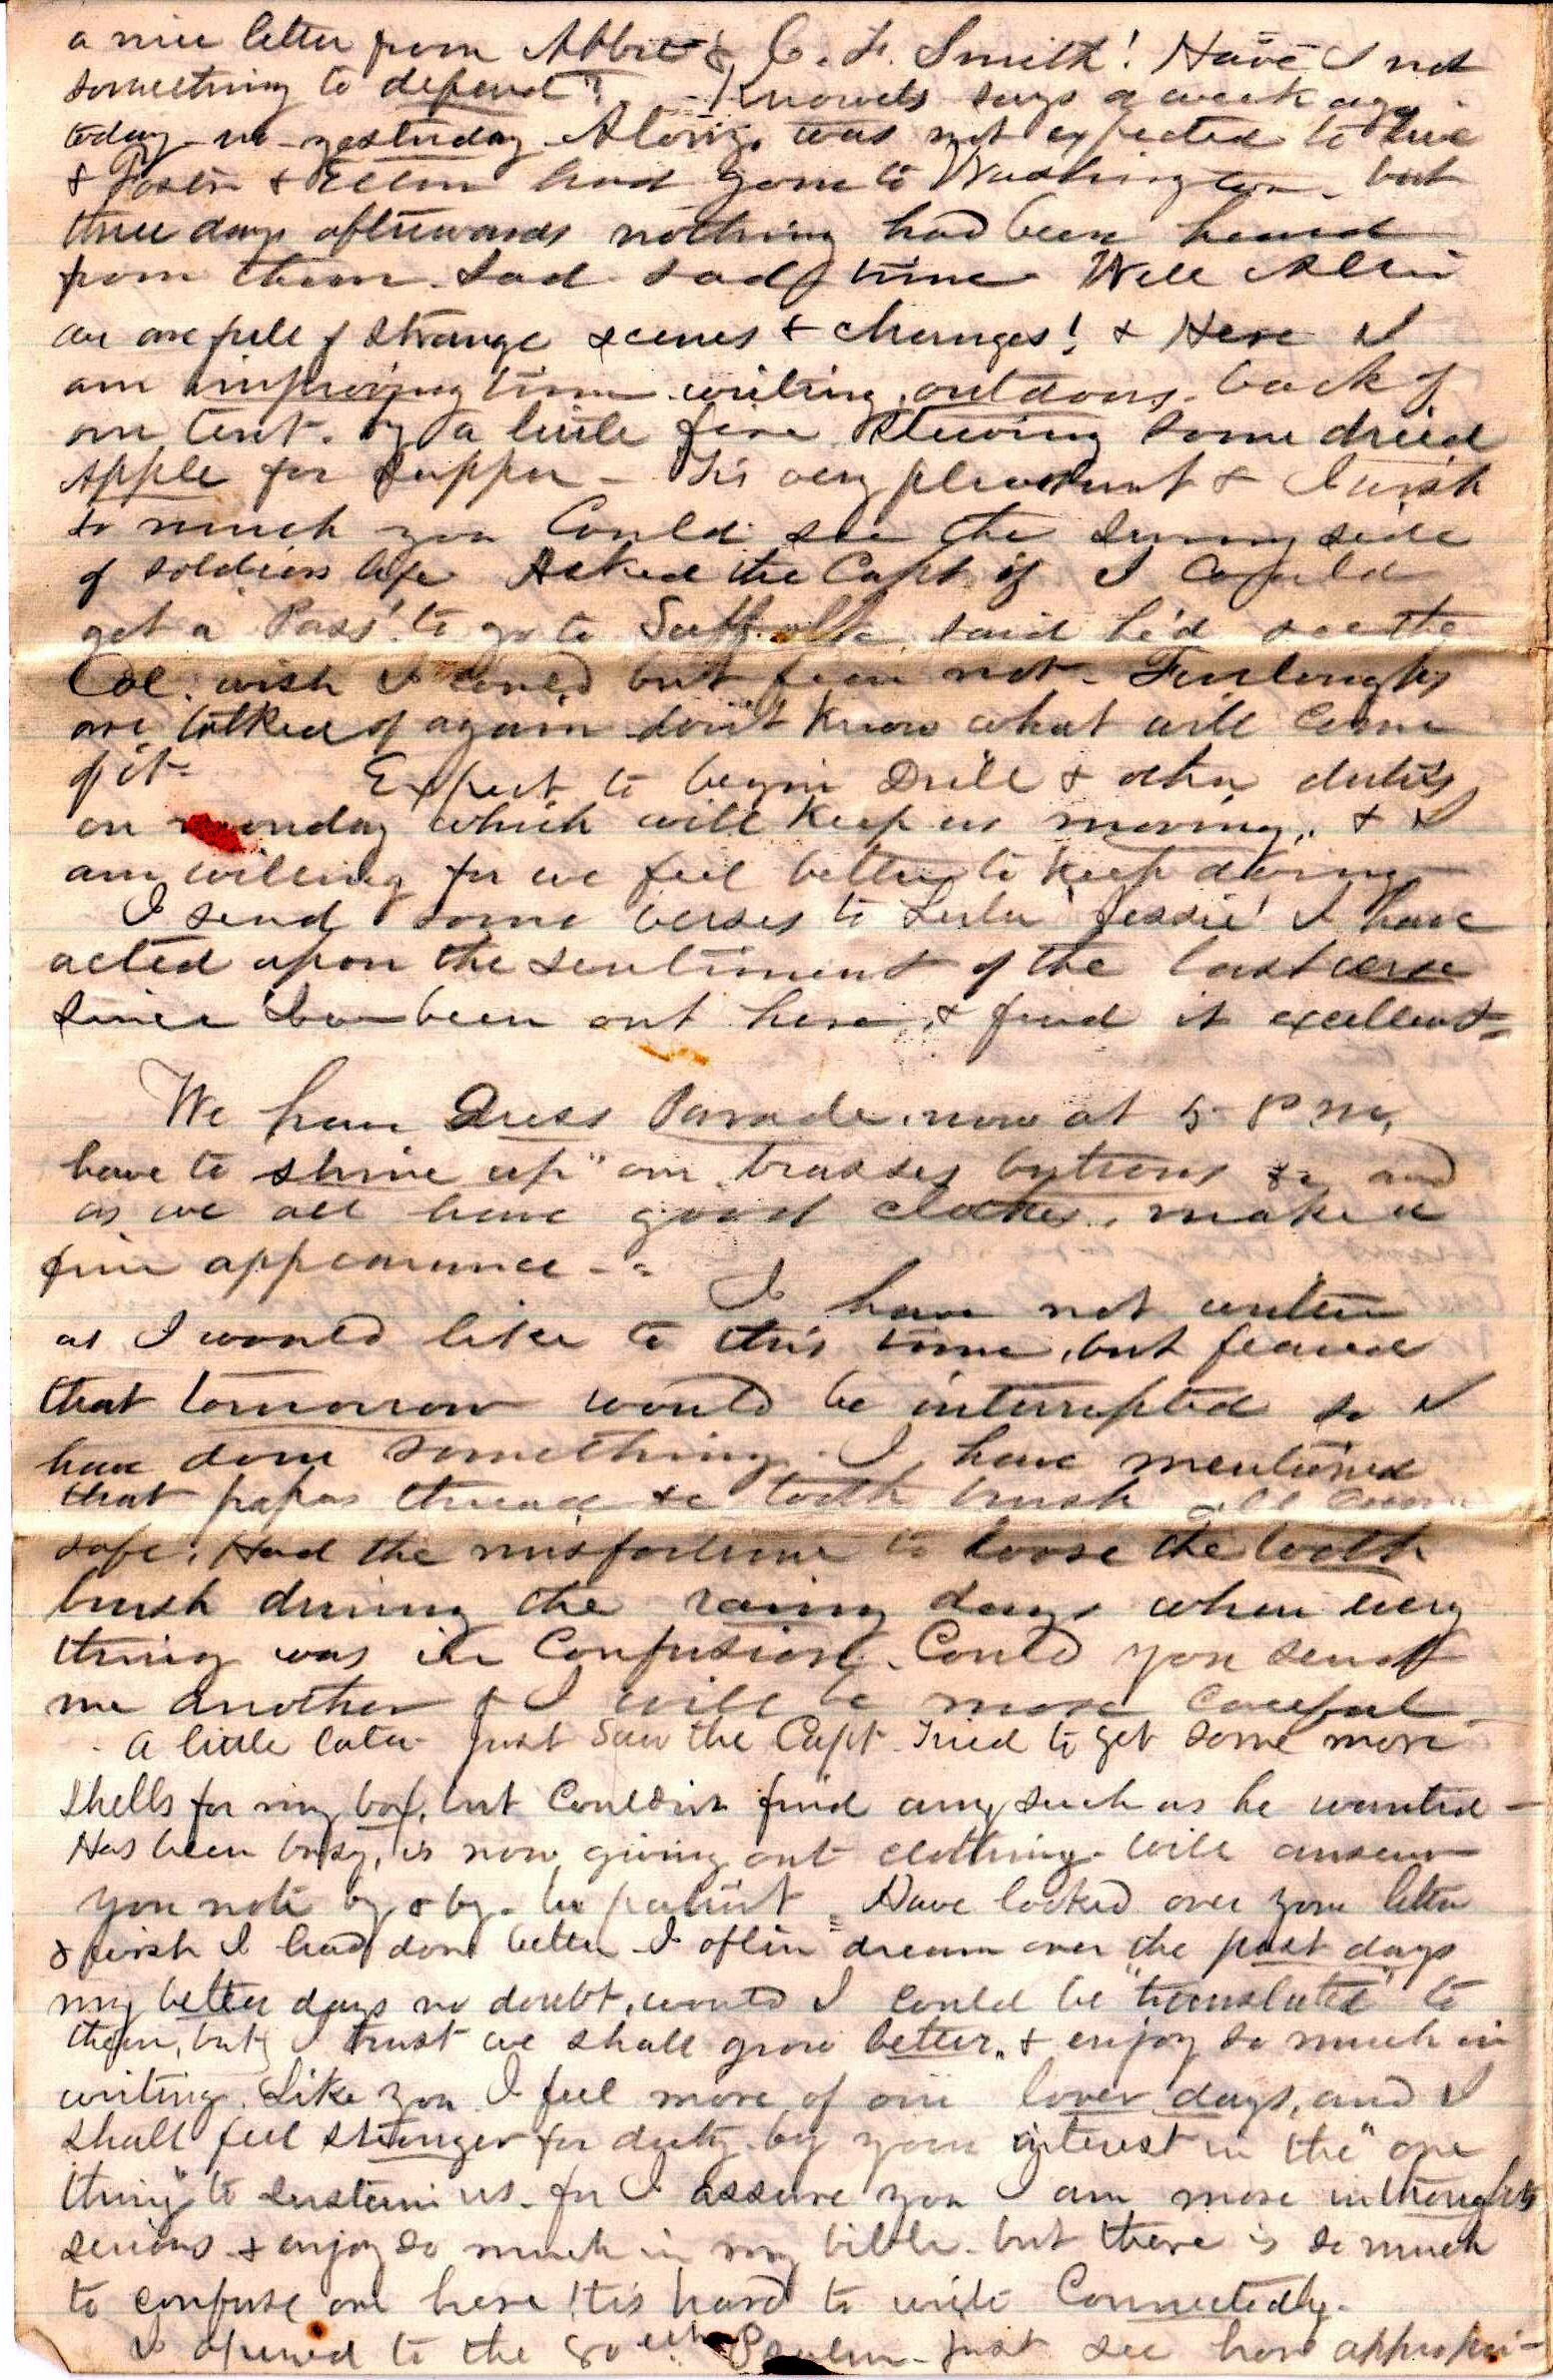 a nice letter from Abbie & C. F. Smith! Have I not
something to depend? Knowels says a week ago
today - no - yesterday Alonzo was not expected to live
& Foster & Ellen had gone to Washington - but
three days afterwards nothing had been heard
from them. Sad sad time Well Allie
are full of strange scenes & changes! & Here I
am improving time writing outdoors. back of
our tent. by a little fire stewing some dried
Apple for Supper - Tis very pleasant & I wish
so much you Could see the sunny side
of soldiers life Asked the Capt. if I Could
get a 'Pass' to go to Suffolk said he'd see the
Col. wish I could but fear not - Furloughs
are talked of again don't know what will Come
of it - Expect to begin Drill & other duties
on monday which will keep us moving, & I
am willing for we feel better to keep doing
I send some verses to Lulu 'Jessie' I have
acted upon the sentiment of the last verse
since been out here, & find it excellent =
We have Dress Parade now at 5 P m,
have to shine up" our brasses buttons &c and
as we all have good clothes, make a
fine appearance - =
I have not written
as I would like to this time, but feared
that tomorrow would be interrupted so I
have done something. I have mentioned
that papers thread &c tooth brush all came
safe. Had the misfortune to loose the tooth
brush during the rainy days when every
thing was in Confusion. Could you send
me another & I will be more Careful
- A little later - Just Saw the Capt - Tried to get some more
Shells for my box, but Couldn't find any such as he wanted -
Has been busy, is now giving out clothing - Will answer
your note by & by - be patient = Have looked over your letter
& wish I had done better - I often dream over the past days
my better days no doubt, would I could be "translated" to
them, but I trust we shall grow better, & enjoy so much in
writing. Like you I feel more of our lover days, and I
shall feel stronger for duty - by your interest in the "one
thing" to sustain us - for I assure you I am more in thoughts
serious & enjoy so much in my bible - but there is so much
to confuse one here tis hard to write Connectedly -
I opened to the 80 eth Psalm - just see how appropri-